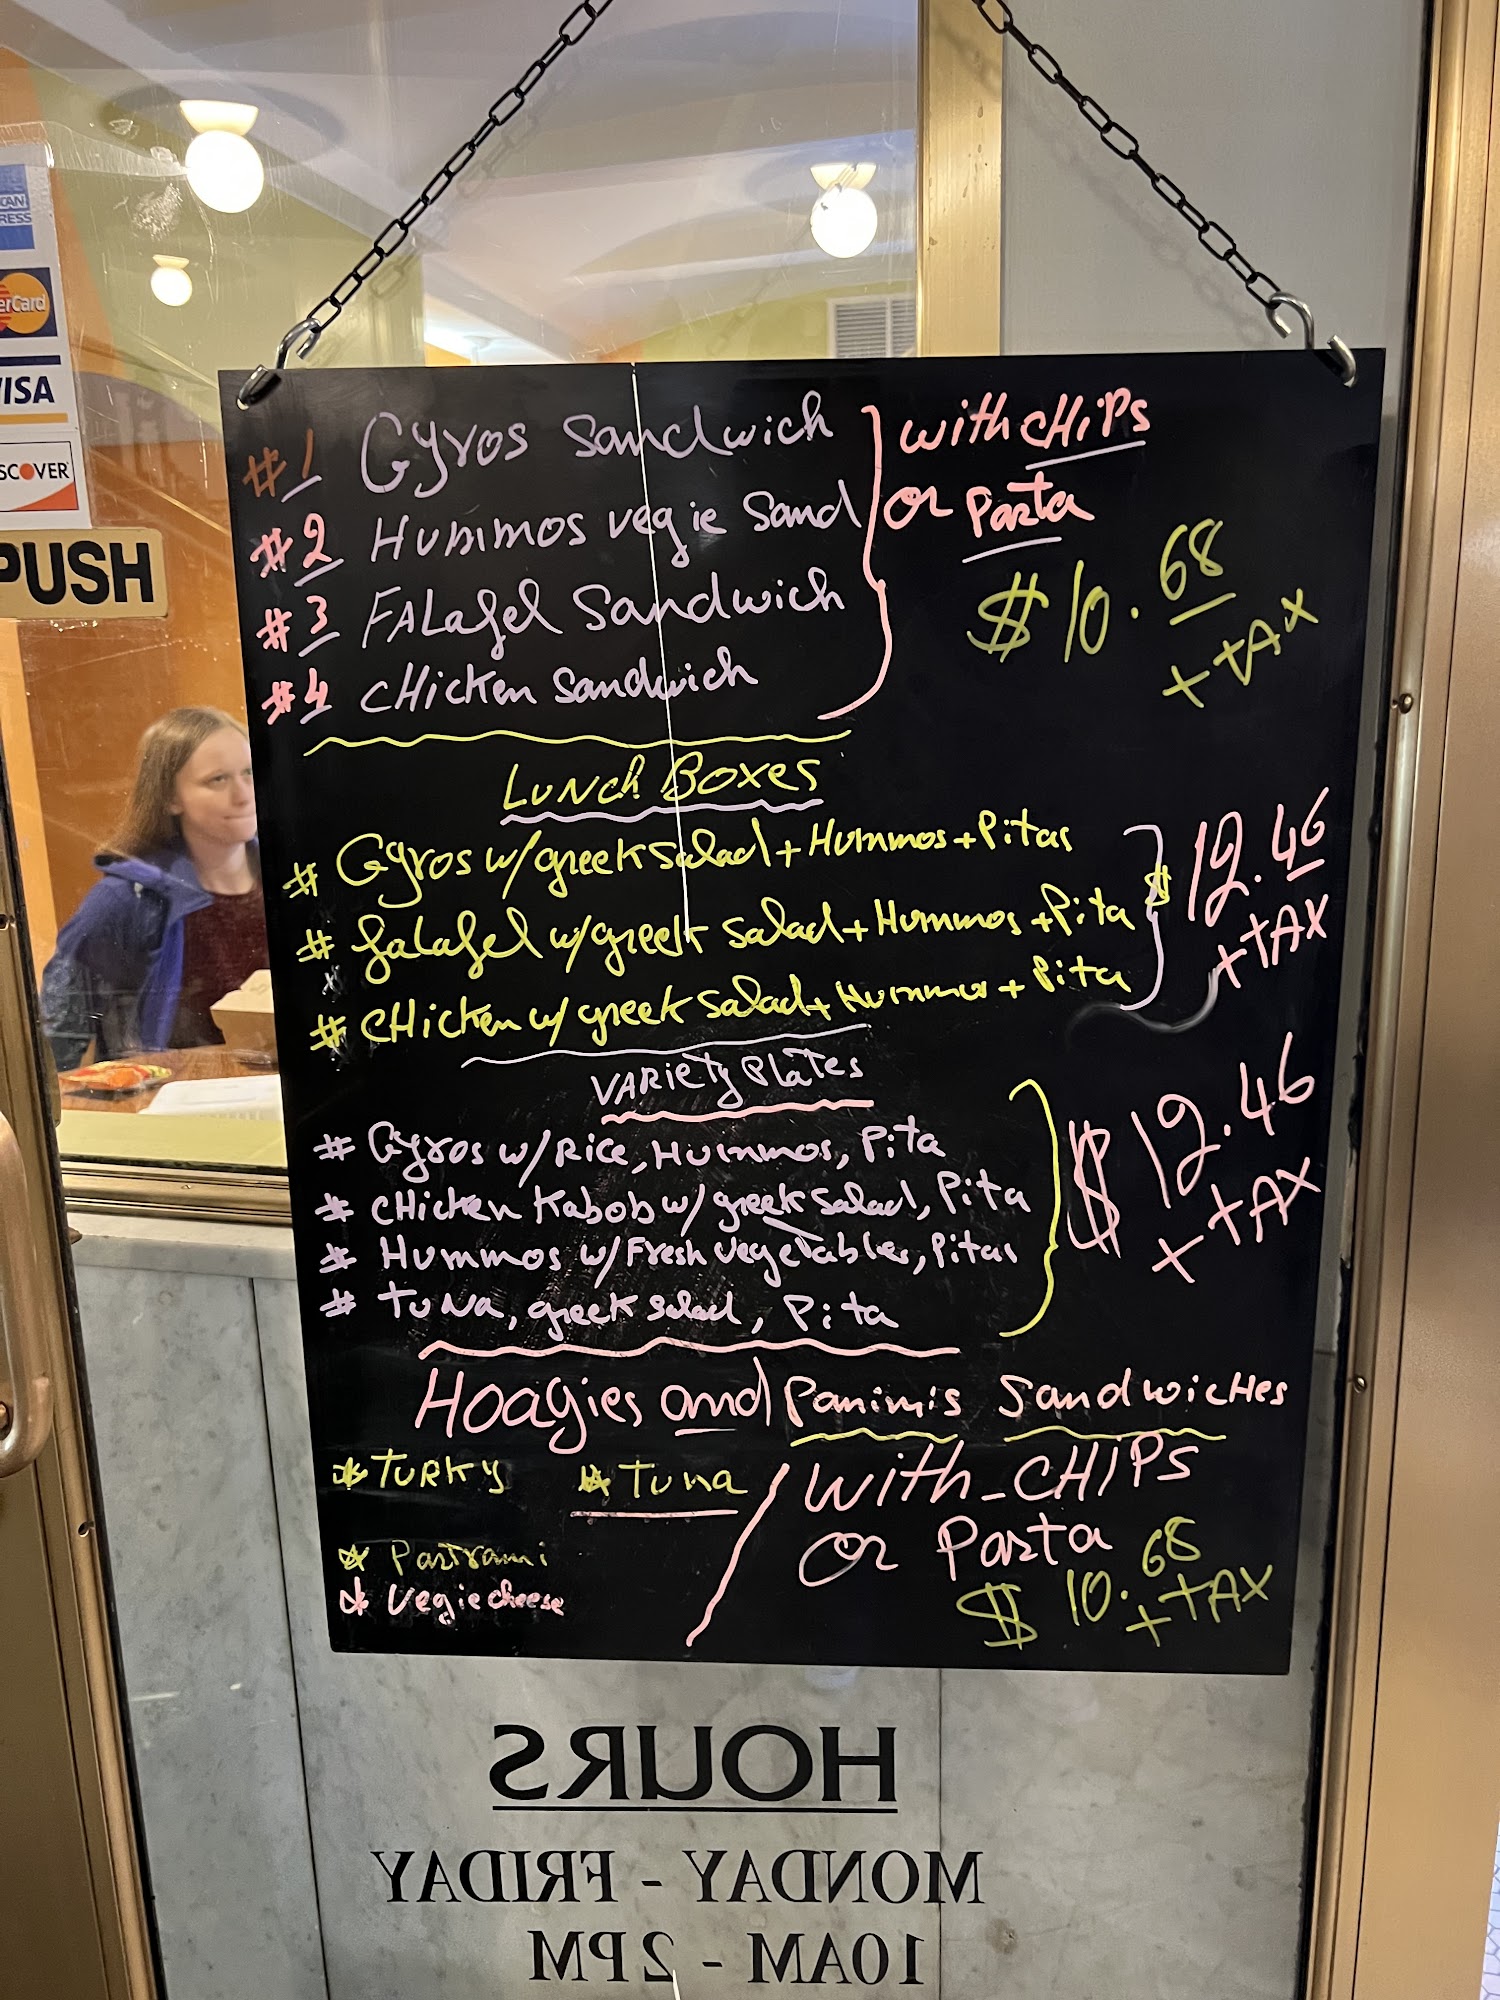 CAN
RESS
erCard
VISA
SCOVER
PUSH
#1 Gyros Sandwich
#2 Hummos vegie Sand
#3 FALafel Sandwich
#4 CHicken Sandwich
with CHiPs
or Pasta
$10.68
+ tAx
Lunch Boxes
# Gyros w/greek Salad + Hummos + Pitas
# falafel w/greek Salad + Hummos + Pita
# CHicken w/ greek Salad + Hummus + Pita
$12.46
+ tAX
VARiety Plates
# Gyros w/Rice, Hummos, Pita
# CHicken Kabob w/ greek Salad, Pita
# Hummos w/Fresh vegetables, Pitas
# tuNa, greek Salad, Pita
$12.46
+ tAX
Hoagies and Paninis SandwicHes
* TURKY
* Tuna
* Pastrami
* Vegie cheese
with CHIPs
or Pasta
$10.68
+ TAX
HOURS
MONDAY - FRIDAY
10AM - 2PM